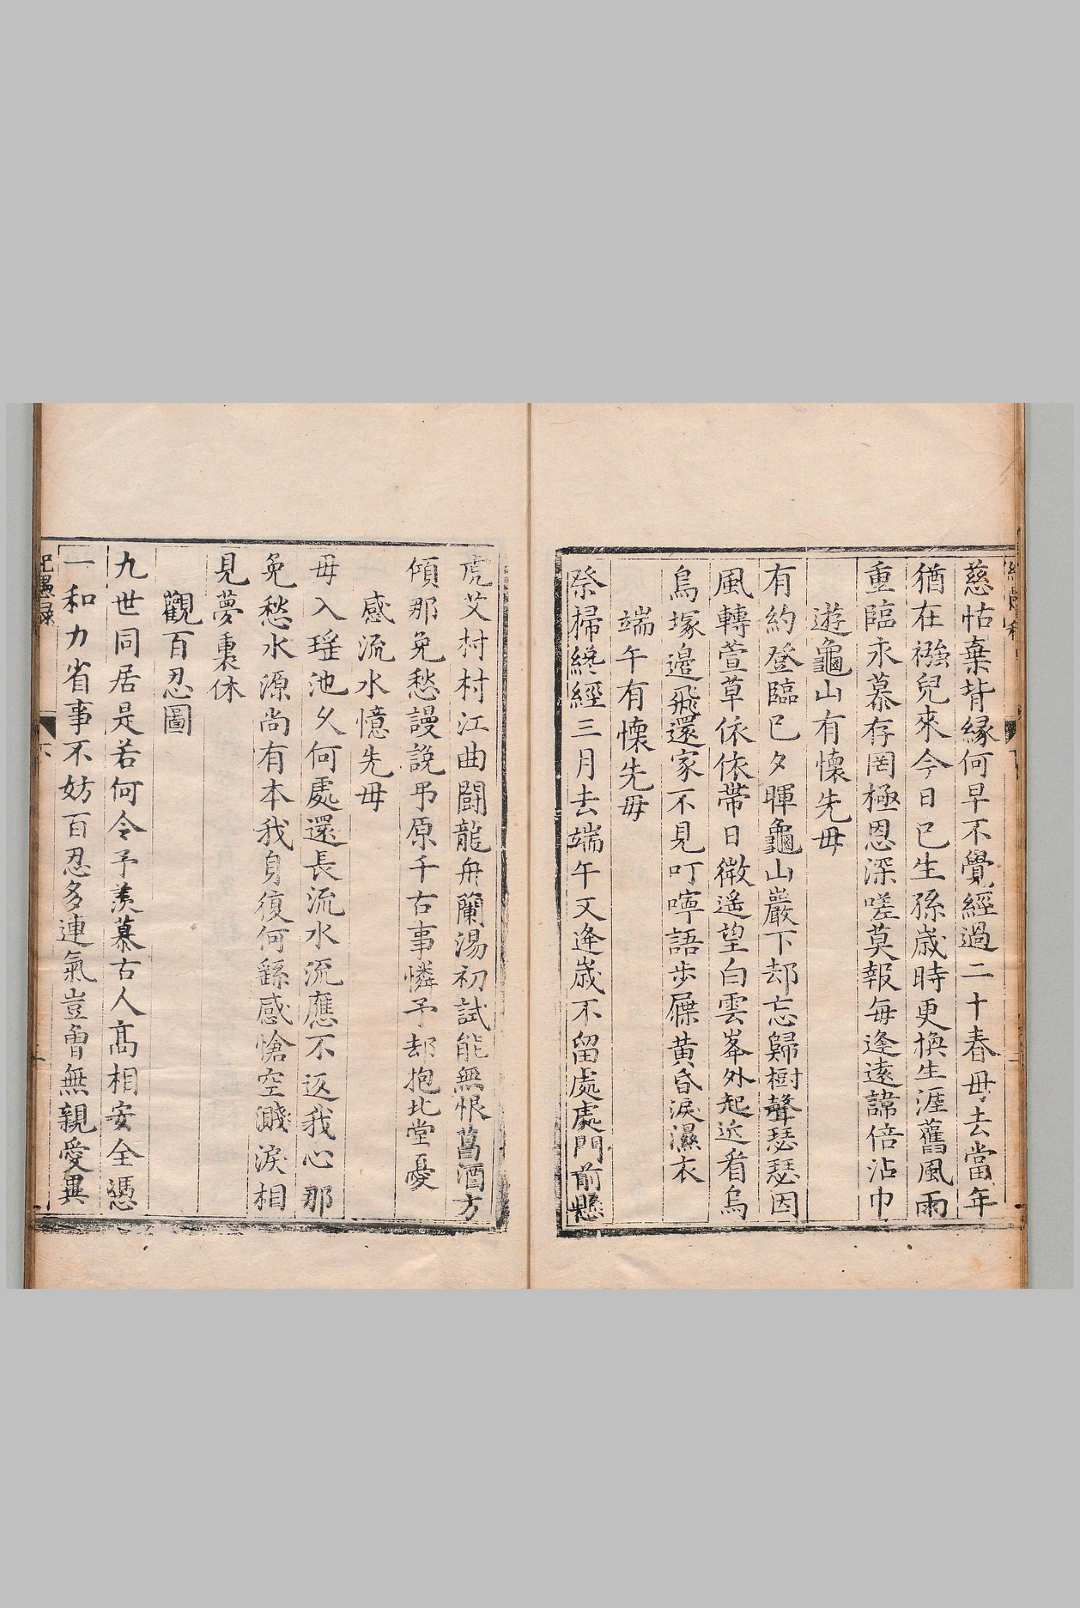 慈怙棄背縁何早不覺經過二十春母去當年
猶在襁兒來今日已生孫歲時更換生涯舊風雨
重臨永慕存罔極恩深嗟莫報每逢遠諱倍沾巾
遊龜山有懷先母
有約登臨已夕暉龜山巖下却忘歸樹聲瑟瑟因
風轉萱草依依帶日微遙望白雲峯外起近看烏
烏塚邊飛還家不見叮嚀語步屧黄昏淚濕衣
端午有懷先母
祭掃終經三月去端午又逢歲不留處處門前懸
虎艾村村江曲鬪龍舟蘭湯初試能無恨菖酒方
傾那免愁謾說吊原千古事憐予却抱北堂憂
感流水憶先母
母入瑤池久何處還長流水流應不返我心那
免愁水源尚有本我身復何繇感愴空濺淚相
見夢裏休
觀百忍圖
九世同居是若何令予羨慕古人高相安全憑
一和力省事不妨百忍多連氣豈曾無親愛異